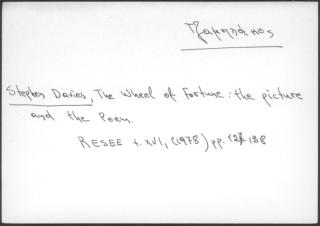 Stephen Davies, The Wheel of Fortune: the picture
and the Poem.
RESEE t. XVI, (1978) pp. 138